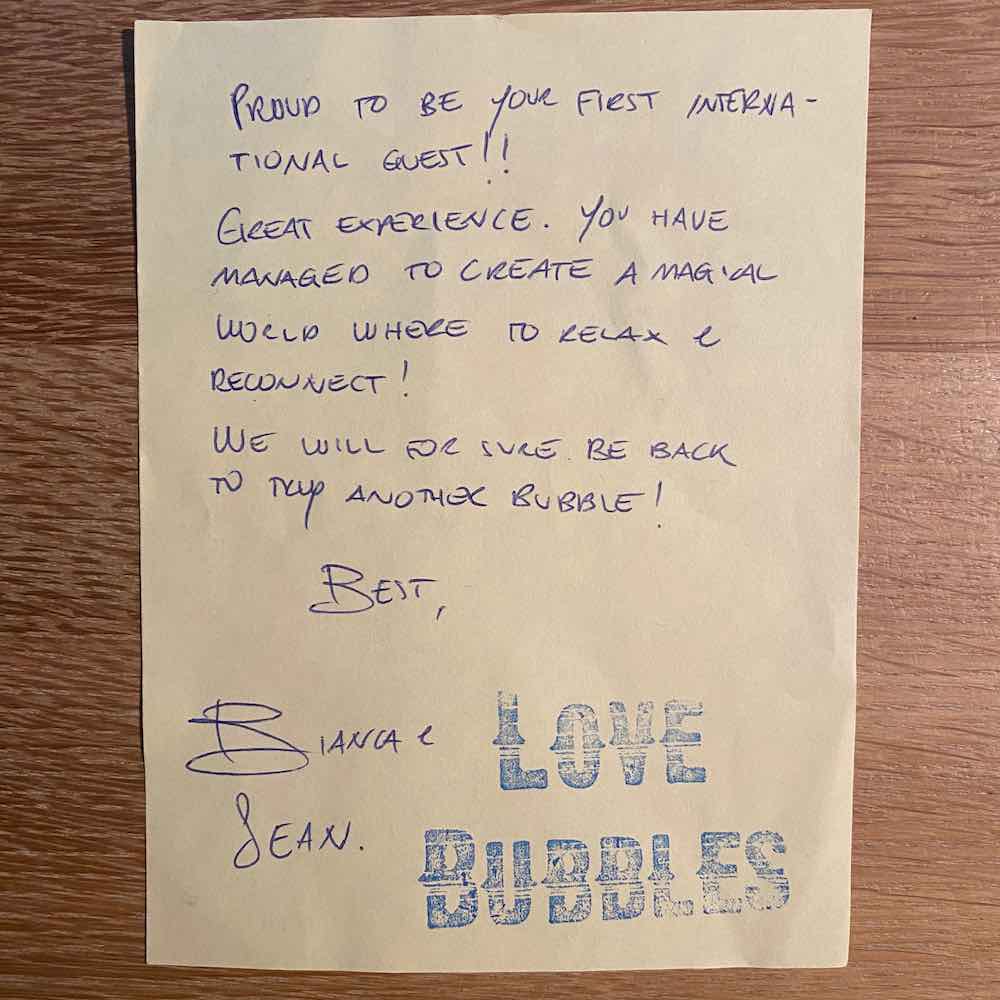 PROUD TO BE YOUR FIRST INTERNA-
TIONAL GUEST!!
GREAT EXPERIENCE. YOU HAVE
MANAGED TO CREATE A MAGICAL
WORLD WHERE TO RELAX e
RECONNECT!
WE WILL FOR SURE BE BACK
TO ANOTHER BUBBLE!
BEST,
BIANCA e
SEAN.
LOVE
BUBBLES